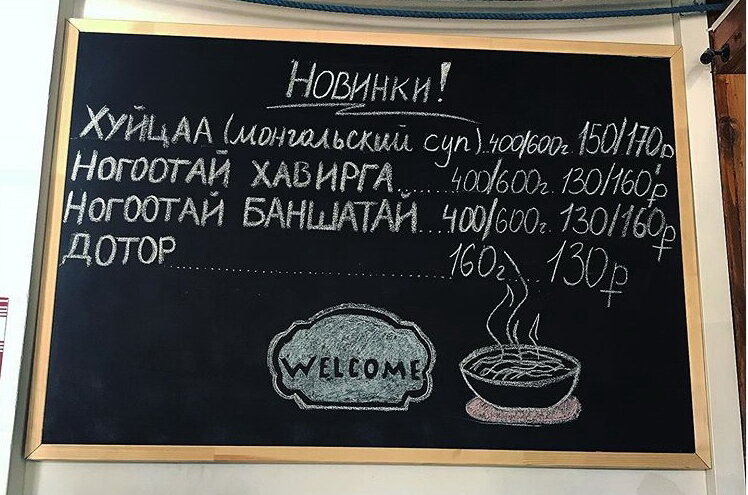 Новинки!
ХУЙЦАА (монгольский суп)..400/600г. 150/170р
НОГООТАЙ ХАВИРГА......400/600г. 130/160р
НОГООТАЙ БАНШАТАЙ...400/600г. 130/160р
ДОТОР..............................160г.... 130р
WELCOME